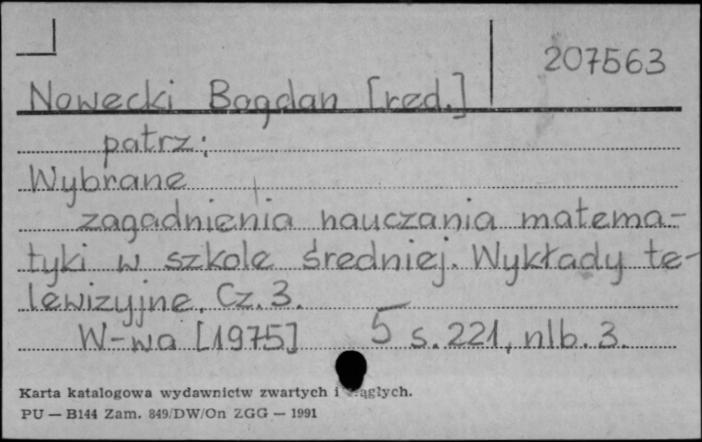 207563
Nowecki Bogdan [red.]
patrz:
Wybrane
zagadnienia nauczania matema-
tyki w szkole średniej. Wykłady te-
lewizyjne. Cz. 3.
W-wa [1975] 5 s. 221, nlb. 3.
Karta katalogowa wydawnictw zwartych i
PU — B144 Zam. 849/DW/On ZGG — 1991